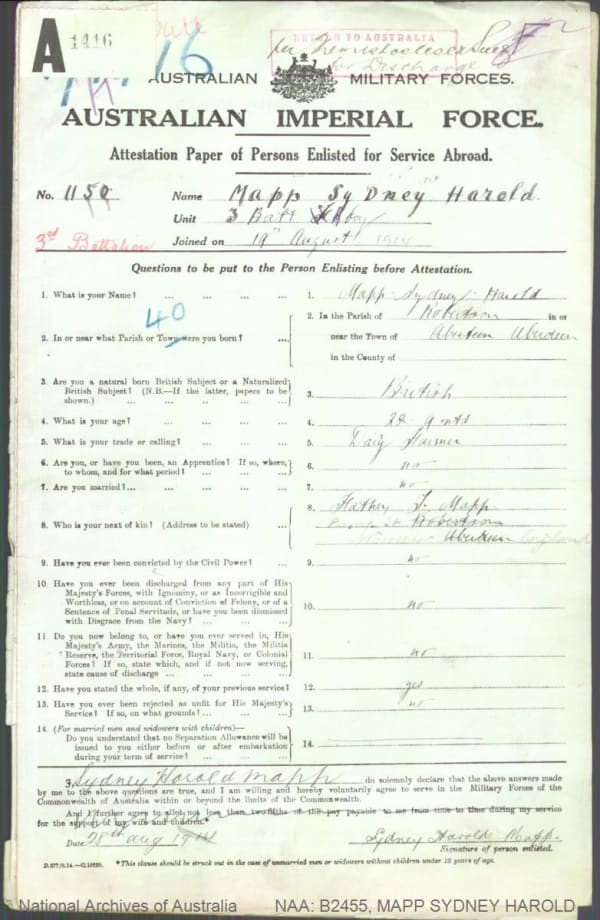 A 1416
RETURN TO AUSTRALIA
for Discharge
AUSTRALIAN MILITARY FORCES.
AUSTRALIAN IMPERIAL FORCE.
Attestation Paper of Persons Enlisted for Service Abroad.
No. 1150 Name Mapp Sydney Harold.
Unit 3 Batt
3rd Battalion
Joined on 19th August 1914
Questions to be put to the Person Enlisting before Attestation.
1. What is your Name? ... ... ... ... 1. Mapp Sydney Harold
40
2. In or near what Parish or Town were you born? ... 2. In the Parish of Robertson in or
near the Town of Aberdeen Aberdeen
in the County of
3. Are you a natural born British Subject or a Naturalized
British Subject? (N.B.—If the latter, papers to be
shown.) ... ... ... ... 3. British
4. What is your age? ... ... ... ... 4. 28
5. What is your trade or calling? ... ... ... 5. Dairy Farmer
6. Are you, or have you been, an Apprentice? If so, where,
to whom, and for what period? ... ... ... 6. no
7. Are you married?... ... ... ... ... 7. no
8. Who is your next of kin? (Address to be stated) ... 8. Father Mapp
Robertson
Aberdeen England
9. Have you ever been convicted by the Civil Power? ... 9. no
10. Have you ever been discharged from any part of His
Majesty's Forces, with Ignominy, or as Incorrigible and
Worthless, or on account of Conviction of Felony, or of a
Sentence of Penal Servitude, or have you been dismissed
with Disgrace from the Navy? ... ... ... 10. no
11. Do you now belong to, or have you ever served in, His
Majesty's Army, the Marines, the Militia, the Militia
Reserve, the Territorial Force, Royal Navy, or Colonial
Forces? If so, state which, and if not now serving,
state cause of discharge ... ... ... ... 11. no
12. Have you stated the whole, if any, of your previous service? 12. yes
13. Have you ever been rejected as unfit for His Majesty's
Service? If so, on what grounds? ... ... ... 13. no
14. (For married men and widowers with children)—
Do you understand that no Separation Allowance will be
issued to you either before or after embarkation
during your term of service? ... ... ... 14.
I, Sydney Harold Mapp do solemnly declare that the above answers made
by me to the above questions are true, and I am willing and hereby voluntarily agree to serve in the Military Forces of the
Commonwealth of Australia within or beyond the limits of the Commonwealth.
And I further agree to allot not less than two-fifths of the pay payable to me from time to time during my service
for the support of my wife and children.*
Date 28th Aug 1914 Sydney Harold Mapp.
Signature of person enlisted.
D.377/8.14.—C.10020. *This clause should be struck out in the case of unmarried men or widowers without children under 18 years of age.
National Archives of Australia NAA: B2455, MAPP SYDNEY HAROLD